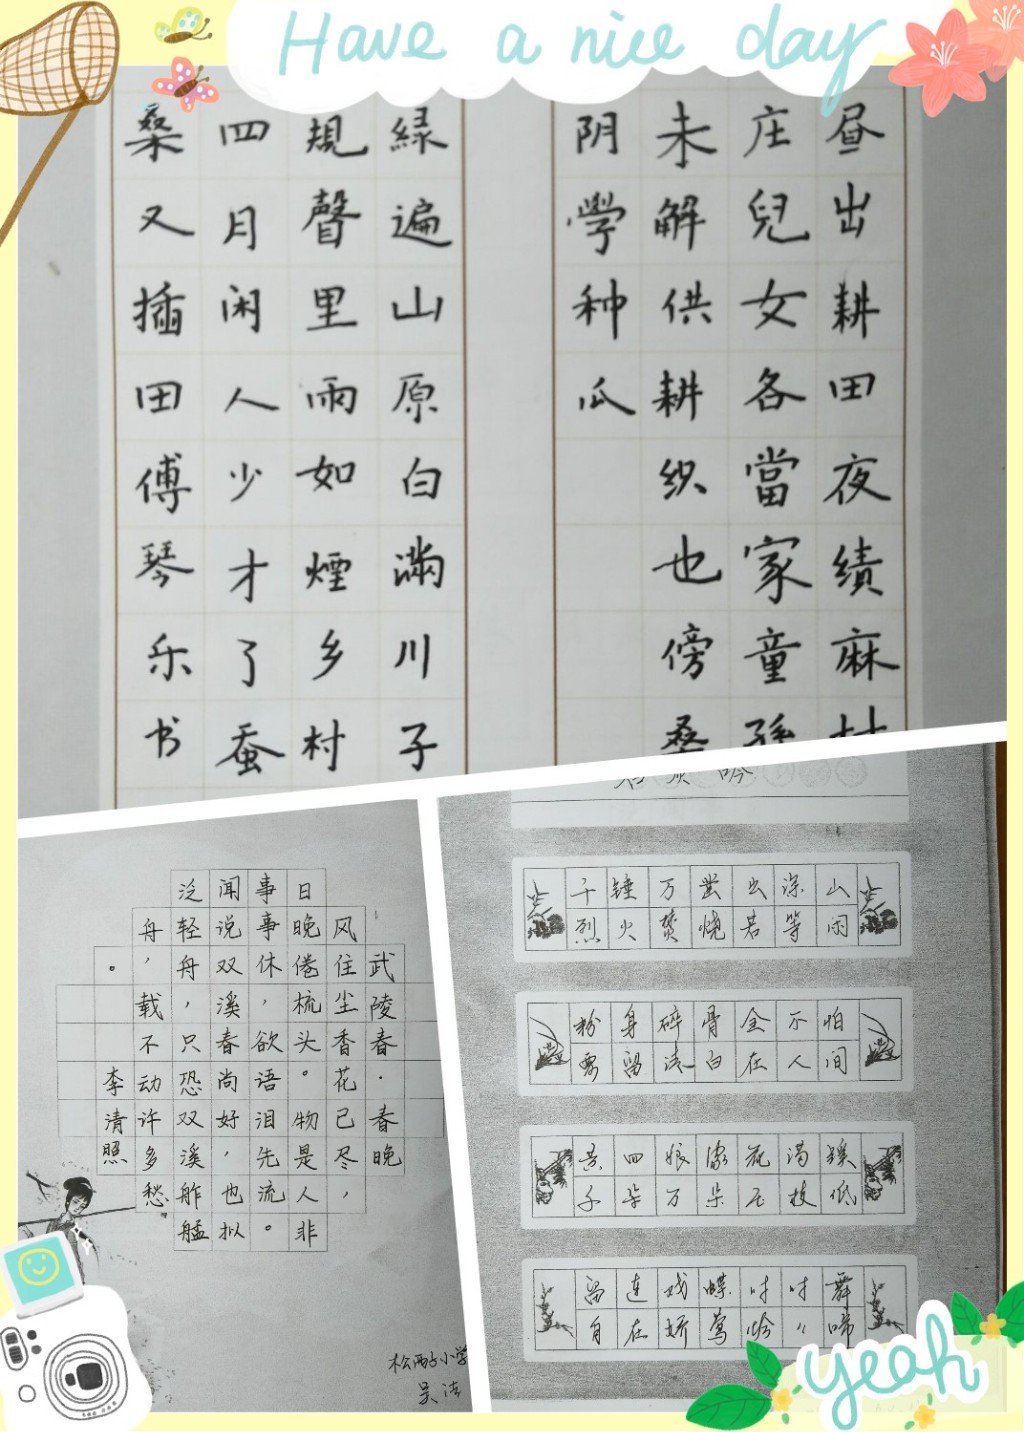 Have a nice day
昼出耕田夜绩麻村
庄兒女各當家童孫
未解供耕织也傍桑
阴學种瓜
緑遍山原白滿川子
規聲里雨如煙乡村
四月闲人少才了蚕
桑又插田傅琴乐书
武陵春·春晚
风住尘香花已尽，
日晚倦梳头。物是人非
事事休，欲语泪先流。
闻说双溪春尚好，也拟
泛轻舟，只恐双溪舴艋
舟，载不动许多愁
。李清照
小学
吴洁
石灰吟
千锤万凿出深山
烈火焚烧若等闲
粉身碎骨全不怕
要留清白在人间
黄四娘家花满蹊
千朵万朵压枝低
留连戏蝶时时舞
自在娇莺恰〃啼
yeah